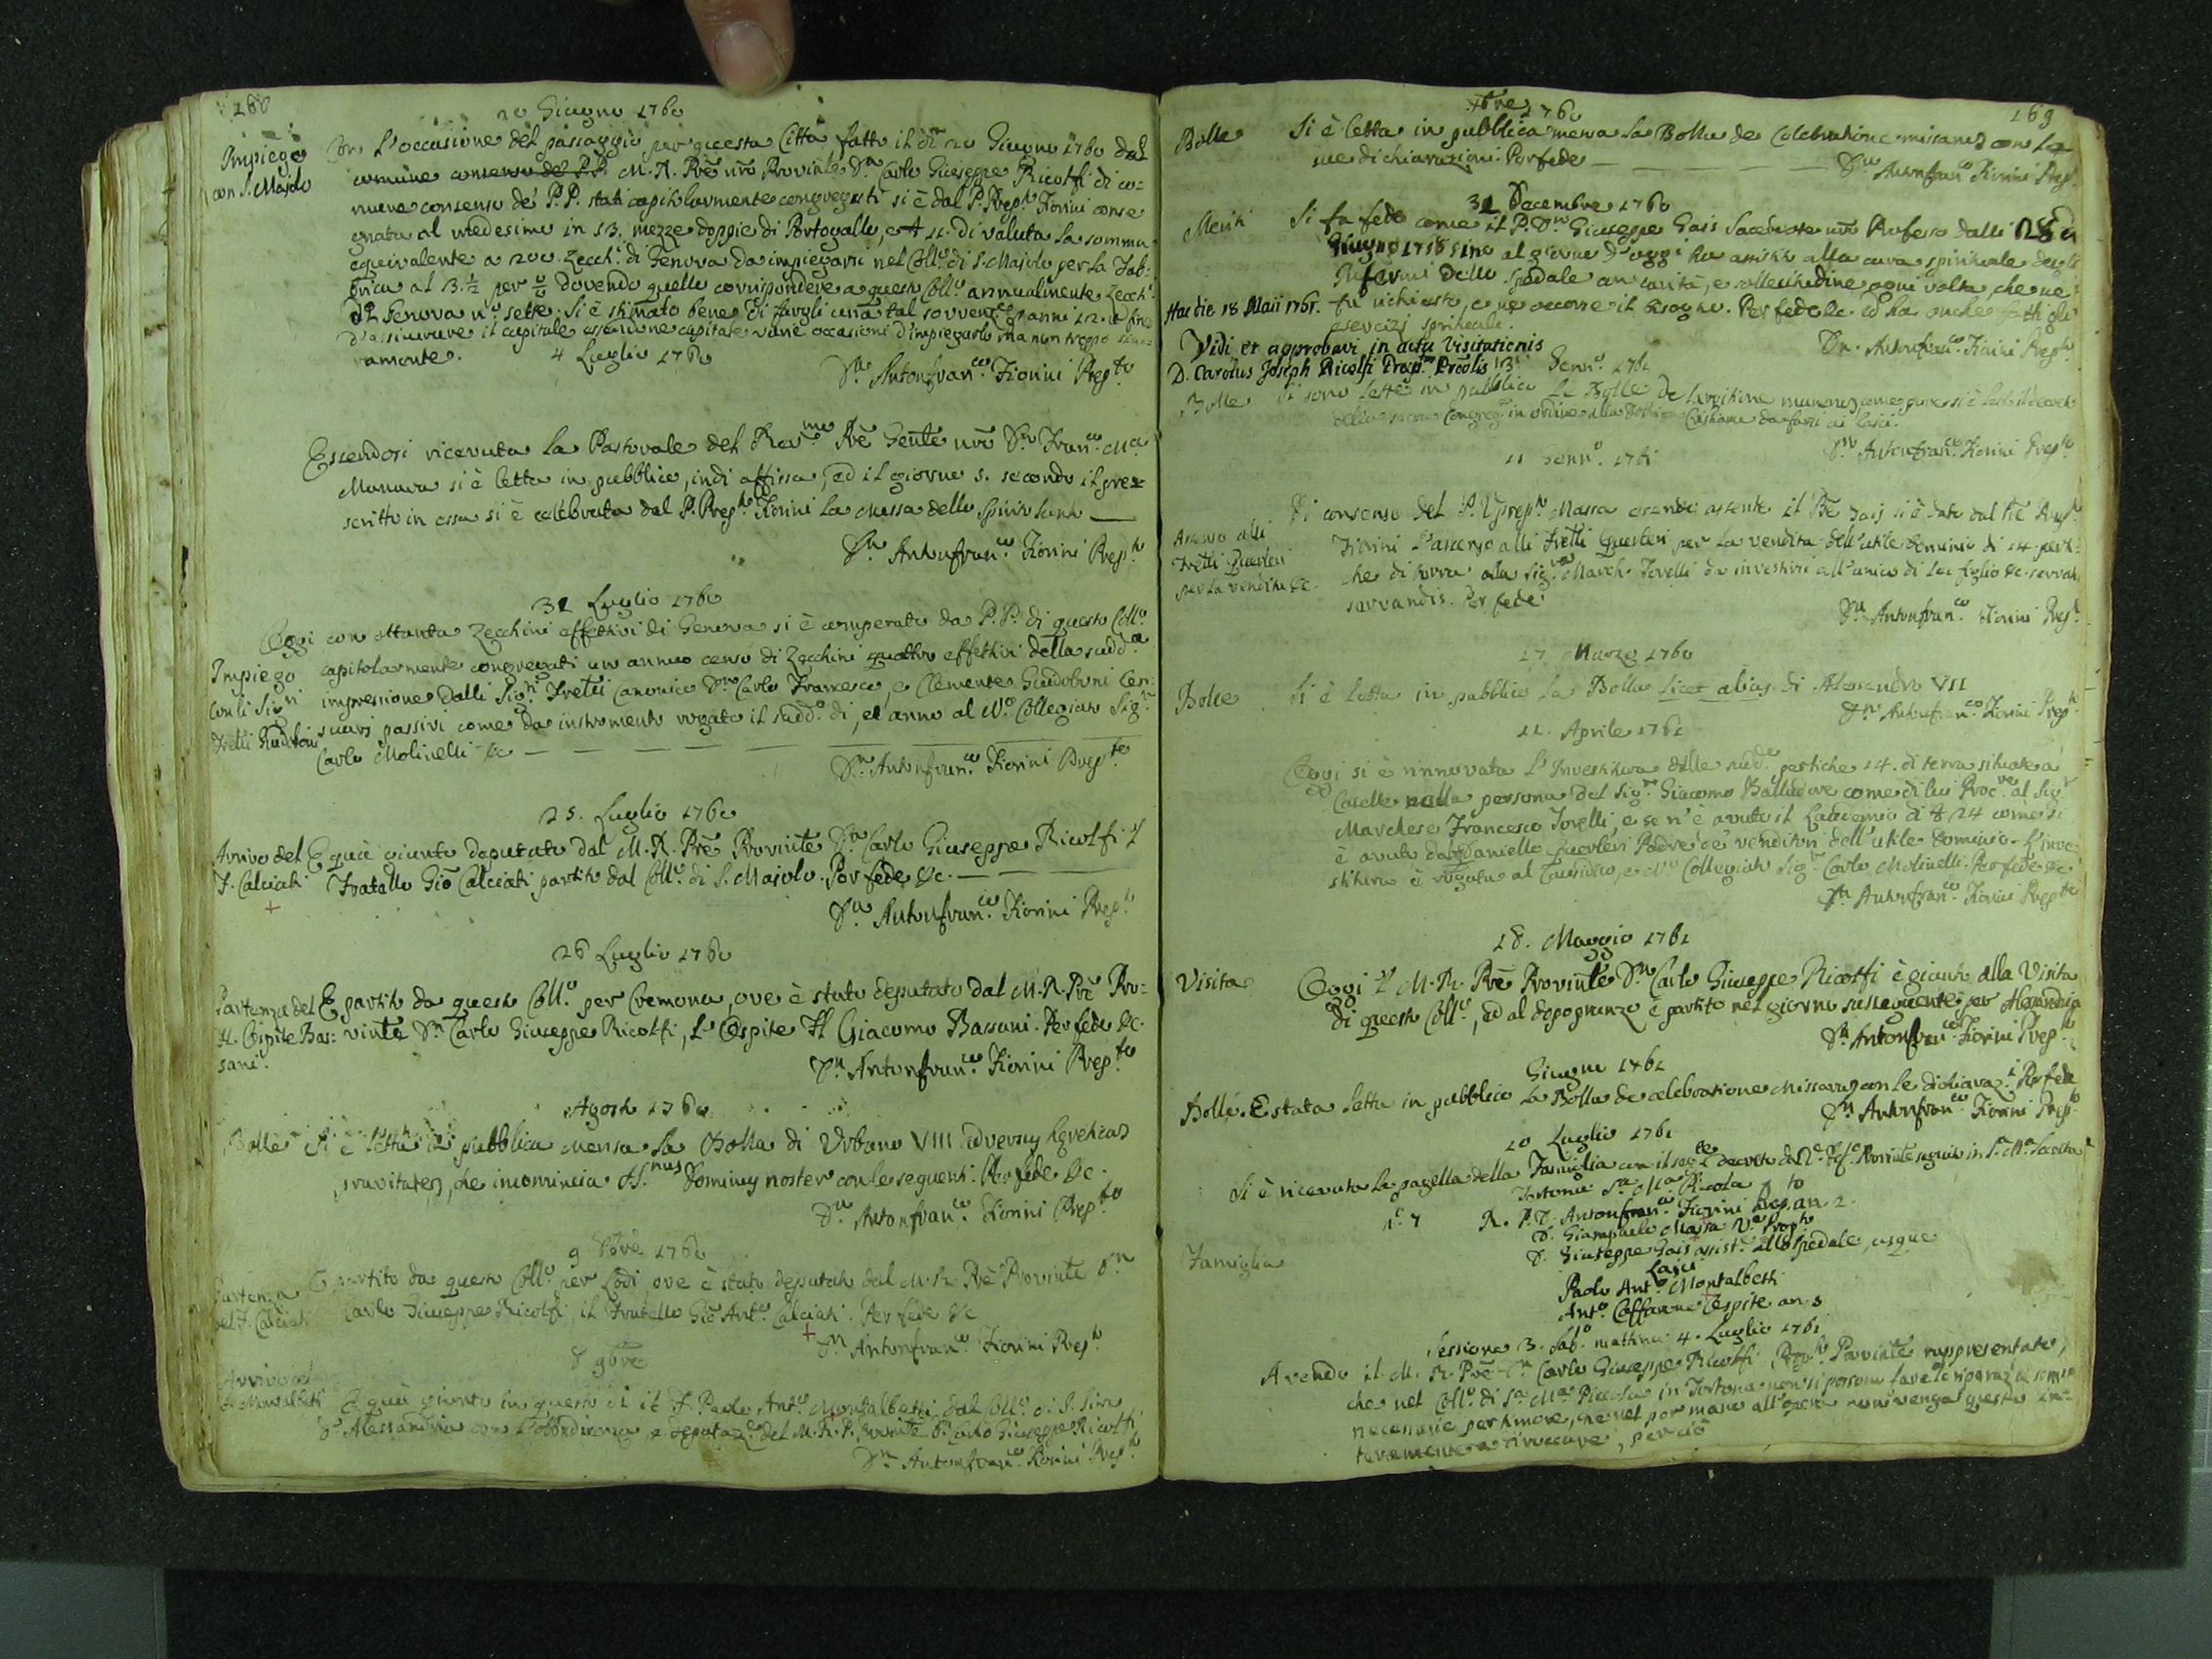 168
20 Giugno 1760
Impiego
con S. Majolo
Con l'occasione del passaggio per questa Città fatto il dì 20 Giugno 1760 dal
comune consenso de' P.P. M. R. Pre nro Provinle Dn Carlo Giuseppe Ricolfi di co-
mune consenso de' P.P. stati capitolarmente congregati si è dal P. Prepto Fiorini conse
gnata al medesimo in 13. mezze doppie di Portogallo, e # 11. di valuta la somma
equivalente a 200. Zecchi di Genova da impiegarsi nel Collo di S. Majolo per la Fab:
brica al 3. ½ per % dovendo quello corrispondere a questo Collo annualmente Zecchi
di Genova no sette. Si è stimato bene di fargli una tal sovvene p anni 12. a fine
d'assicurare il capitale essendone capitate varie occasioni d'impiegarlo ma non troppo sicu-
ramente.
4 Luglio 1760
Dn Antonfranco Fiorini Prepto
Essendosi ricevuta la Pastorale del Revmo Pre Genle nro Dn Franco Ma
Manara si è letta in pubblico, indi affissa, ed il giorno 5. secondo il pre=
scritto in essa si è celebrata dal P. Prepto Fiorini la Messa dello Spirito Santo
Dn Antonfranco Fiorini Prepto
31 Luglio 1760
Impiego
con li Sigri
Frelli Guidoboni
Oggi con ottanta Zecchini effettivi di Genova si è comperato da P.P. di questo Collo
capitolarmente congregati un annuo censo di Zecchini quattro effettivi della sudda
impressione dalli Sigri Frelli Canonico Dn Carlo Francesco, e Clemente Guidoboni Cen:
suarj passivi come da instromento rogato il suddo di, et anno al No Collegiato Sigr
Carlo Molinelli &c
Dn Antonfranco Fiorini Prepto
25. Luglio 1760
Arrivo del
F. Calciati
E quì giunto deputato dal M. R. Pre Provinle Dn Carlo Giuseppe Ricolfi il
Fratello Gio Calciati partito dal Collo di S. Majolo. Per fede &c.
Dn Antonfranco Fiorini Prepto
26 Luglio 1760
Partenza del
H. Ospite Bas:
sani.
E partito da questo Collo per Cremona, ove è stato deputato dal M. R. Pre Pro=
vinle Dn Carlo Giuseppe Ricolfi, l'Ospite H Giacomo Bassani. Per fede &c.
Dn Antonfranco Fiorini Prepto
Agosto 1760
Bolle
Si è letta in pubblica mensa la Bolla di Urbano VIII adversus hereticas
pravitates, che incomincia SS.mus Dominus noster con le seguenti. Per fede &c.
Dn Antonfranco Fiorini Prepto
9 1760
Partenza
del F. Calciati
E partito da questo Collo per Lodi, ove è stato deputato dal M. R. Pre Provinle Dn
Carlo Giuseppe Ricolfi, il Fratello Gio Anto Calciati. Per fede &c
Dn Antonfranco Fiorini Prepto
8 9bre
Arrivo
F. Montalbetti
E quì giunto in questo dì il F. Paolo Anto Montalbetti dal Collo di S. Siro
d'Alessandria con l'obbedienza, e deputaze del M. R. P. Provinle Dn Carlo Giuseppe Ricolfi
Dn Antonfranco Fiorini Prepto
169
Xbre 1760
Bolle
Si è letta in pubblica mensa la Bolla de Celebratione missarum con le
sue dichiarazioni. Per fede
Dn Antonfranco Fiorini Prepto
31 Decembre 1760
Meriti
Si fa fede come il P. Dn Giuseppe Gais Sacerdote nro Professo dalli 28 di
Giugno 1758 sino al giorno d'oggi ha assistito alla cura spirituale degli
Infermi dello Spedale con carità, e sollecitudine ogni volta, che ne
fu richiesto, e ne occorre il bisogno. Per fede &c. ed ha anche fatti gli
esercizj spirituali.
Dn. Antonfranco Fiorini Prepto
Hac die 18 Maii 1761.
Vidi et approbavi in actu Visitationis
D. Carolus Joseph Ricolfi Praep. Prvlis
13 Genno 1761
Bolle
Si sono lette in pubblico le Bolle De largitione munerum, come pure si è letto il decreto
della sacra Congrege in ordine alla Dottrina Cristiana da farsi ai laici.
Dn Antonfranco Fiorini Prepto
21 Genno 1761
Assenso alli
Frelli Querleri
per la vendita &c.
Di consenso del P. Vprepto Massa essendo assente il Pre Gais si è dato dal Pre Prepto
Fiorini l'assenso alli Frelli Querleri per la vendita dell'utile dominio di 14. perti:
che di terra alla Sigra March. Torelli da investirsi all'unico di lei figlio &c. servatis
servandis. Per fede
Dn Antonfranco Fiorini Prepto
17 Marzo 1760
Bolle
Si è letta in pubblico la Bolla Licet alias di Alessandro VII
Dn Antonfranco Fiorini Prepto
11. Aprile 1761
Oggi si è rinnovata l'Investitura delle sudde pertiche 14. di terra situate a
Caselle nella persona del Sigr Giacomo Balladore come di lui Procre al Sigr
Marchese Francesco Torelli, e se n'è avuto il Laudemio di # 24 come si
è avuto da Daniello Querleri Padre de' venditori dell'utile dominio. L'inve-
stitura è rogata al Causidico, e No Collegiato Sigr Carlo Molinelli. Per fede &c
Dn Antonfranco Fiorini Prepto
18. Maggio 1761
Visita
Oggi il M. R. Pre Provinle Dn Carlo Giuseppe Ricolfi è giunto alla Visita
di questo Collo, ed al dopopranzo è partito nel giorno susseguente per Alessandria
Dn Antonfranco Fiorini Prepto
Giugno 1761
Bolle.
E stata letta in pubblico la Bolla de celebratione Missarum con le dichiarai. Per fede
Dn Antonfranco Fiorini Prepto
10 Luglio 1761
Si è ricevuta la pagella della Famiglia con il segte decreto del Provinle seguito in S. Ma Secreta
Tortona Sta Ma Picola
No 7
R. P. D. Antonfranco Fiorini Prepto an. 2.
D. Giampaolo Massa Ve Prepto
D. Giuseppe Gais assiste allo Spedale, usque
Famiglia
Laici
Paolo Anto Montalbetti
Anto Caffarone Ospite an. 3
Sessione 3. Sabo mattina 4. Luglio 1761
Avendo il M. R. Pre Dn Carlo Giuseppe Ricolfi Prepto Provinle rappresentato,
che nel Collo di Sa Ma Piccola in Tortona non si possono fare le riparazi
necessarie per timore, che nel por mano all'opera non venga questa in=
teramente a rovinare, perciò